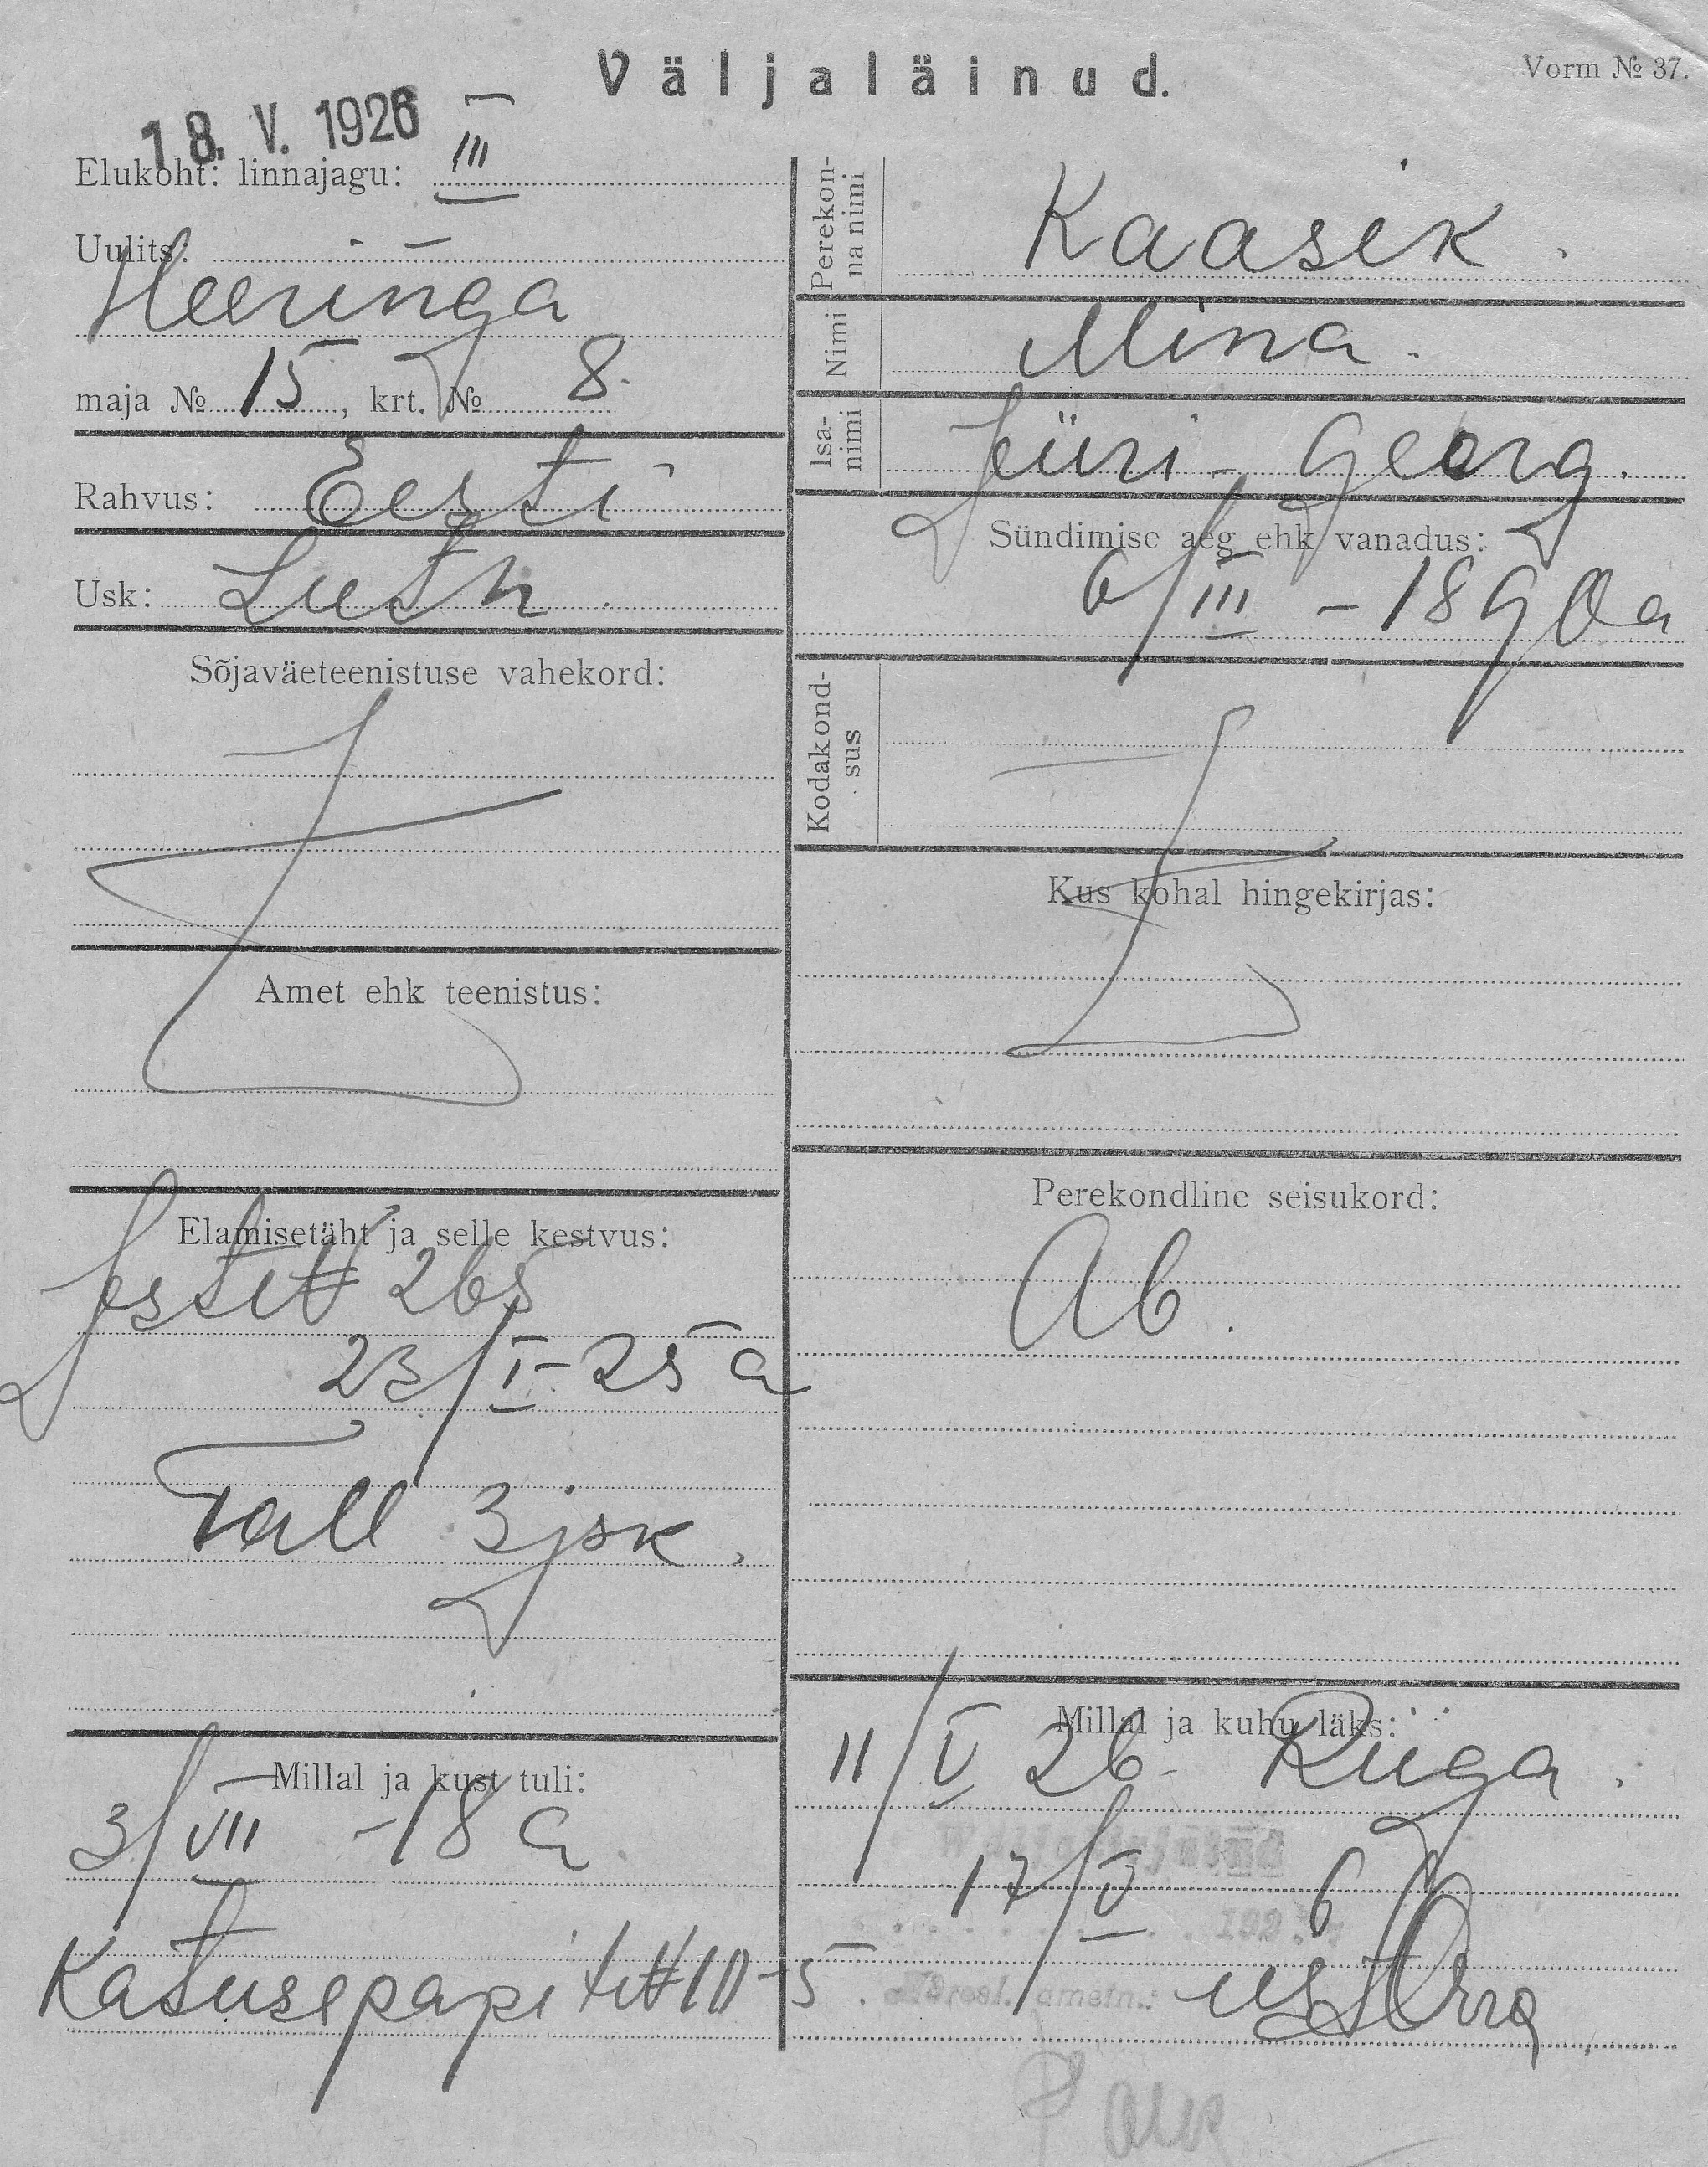 Väljaläinud.
Vorm № 37.
18. V. 1926
Elukoht: linnajagu: III
Uulits:
Heeringa
maja № 15, krt. № 8.
Rahvus: Eesti
Usk: Luth.
Sõjaväeteenistuse vahekord:
Amet ehk teenistus:
Elamisetäht ja selle kestvus:
265
23/I-25 a
Tall 3 jsk.
Millal ja kust tuli:
3/VII -18 a
Katusepapi 10-5.
Perekonna nimi
Kaasik.
Nimi
Miina.
Isanimi
Jüri-Georg.
Sündimise aeg ehk vanadus:
6/III - 1890 a
Kodakondsus
Kus kohal hingekirjas:
Perekondline seisukord:
Ab.
Millal ja kuhu läks:
11/V 26. Riiga.
17/V 6
192
ametn.: